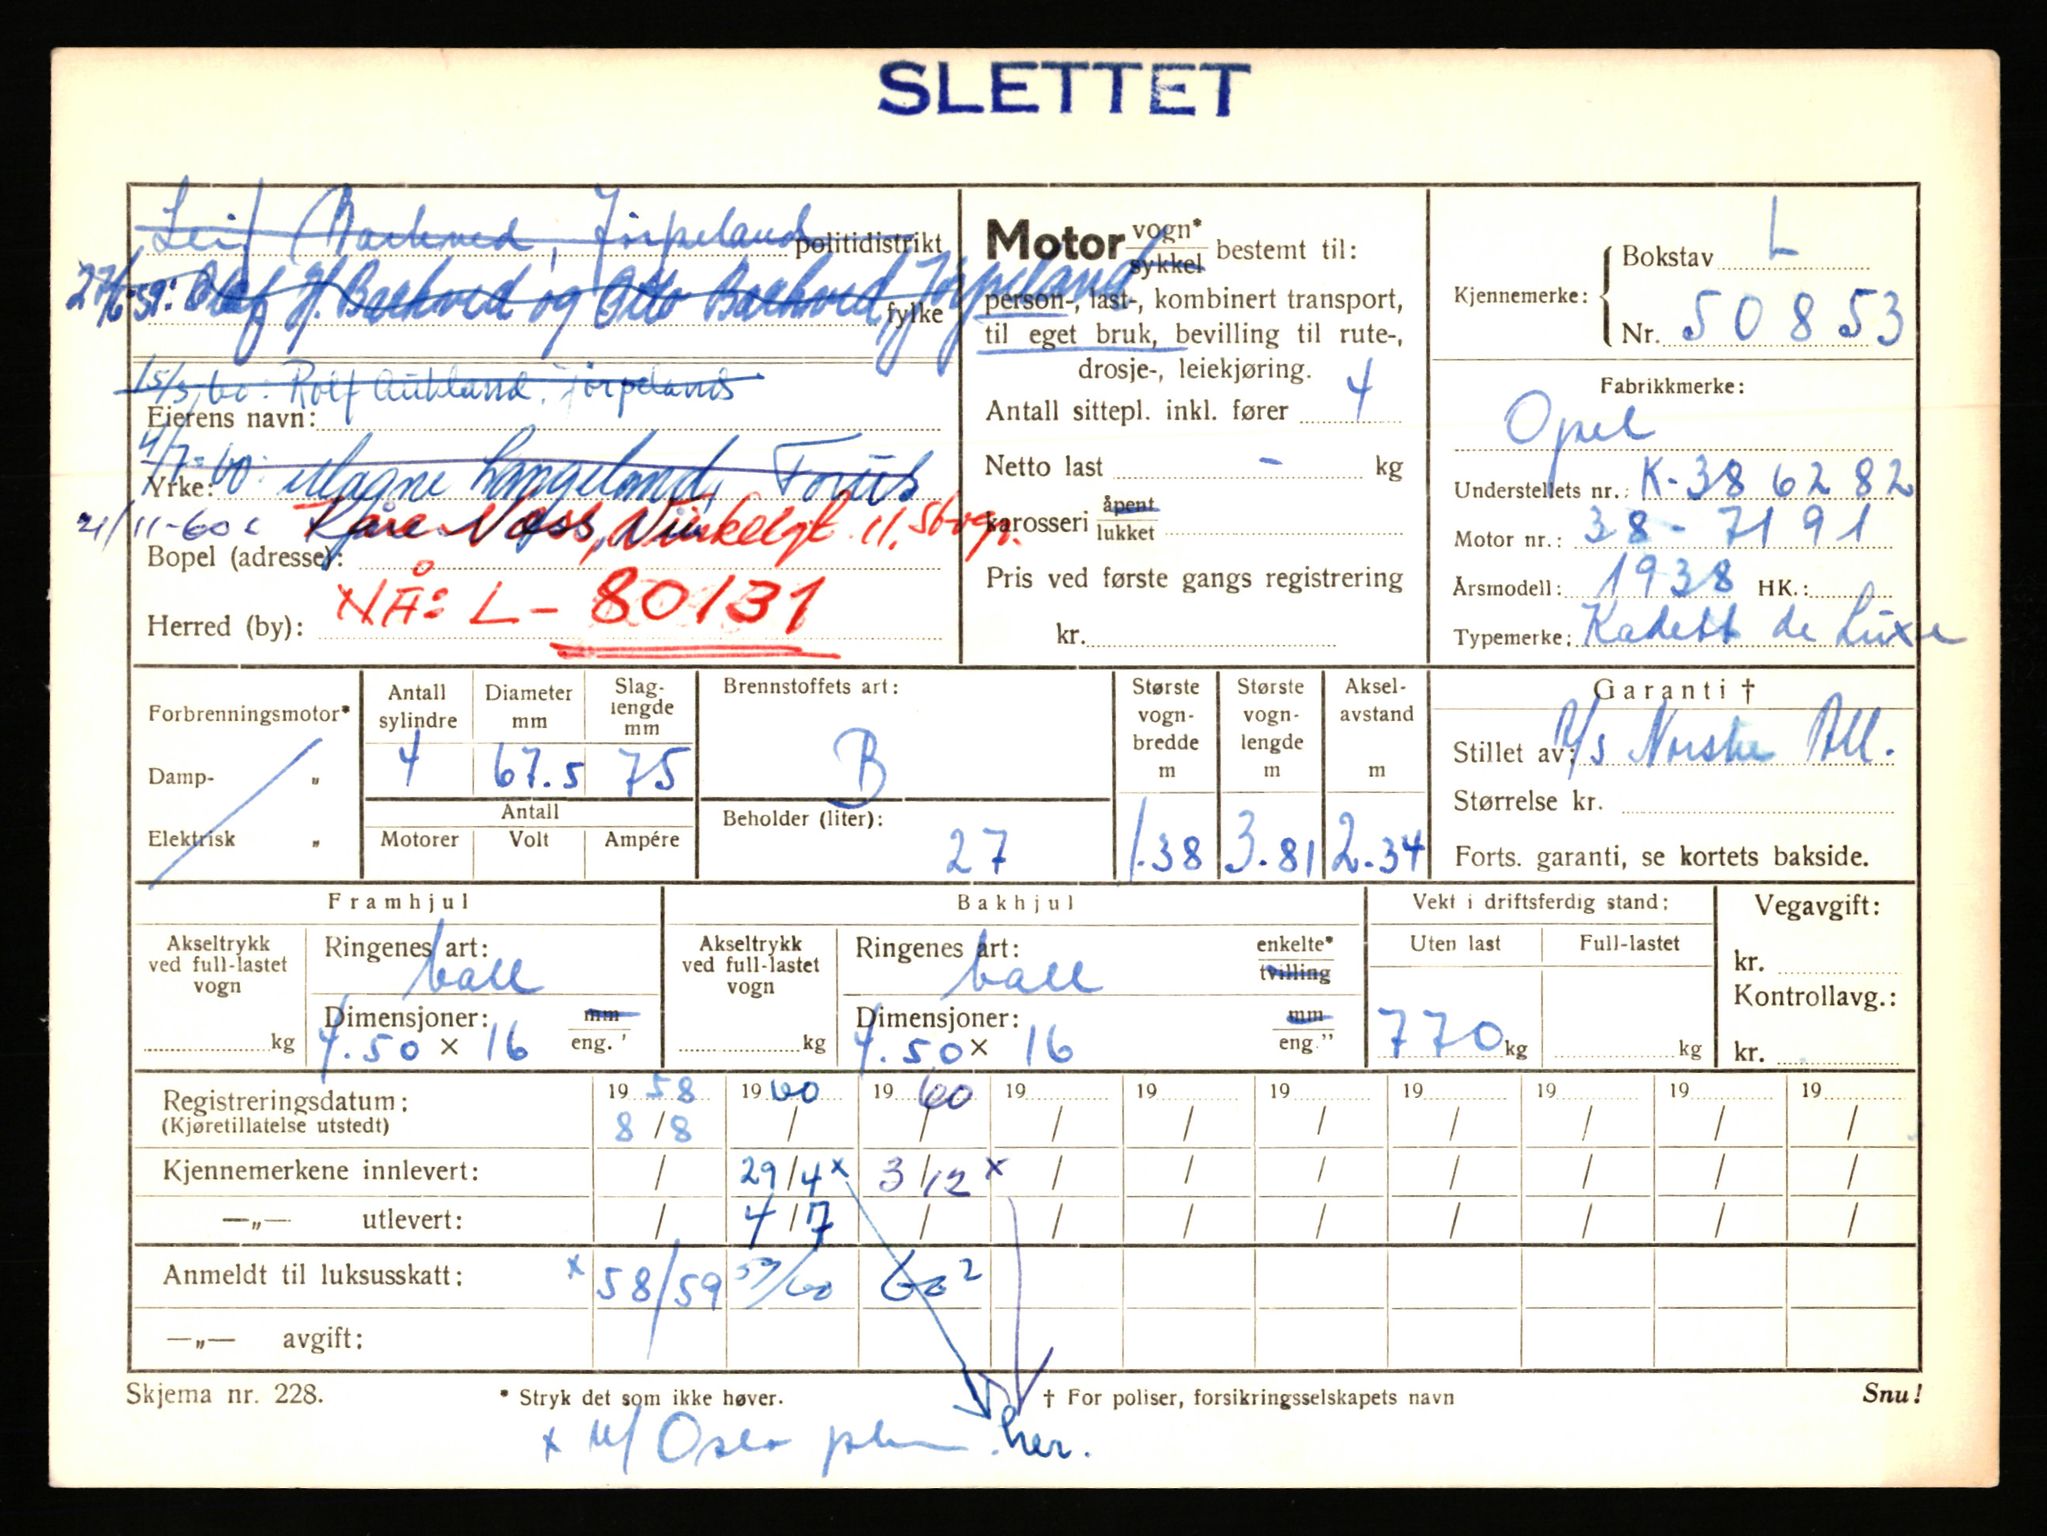 SLETTET
Leif Barkved, Jørpeland politidistrikt
27/6-59: Olaf H. Barkved og Otto Barkved, Jørpeland
fylke
15/3-60: Rolf Aukland, Jørpeland
Eierens navn:
4/7-60: Magne Langeland, Forus
Yrke:
21/11-60: Kåre Næss, 11, Sbrgr.
Bopel (adresse):
NÅ: L- 80131
Herred (by):
Motor vogn* sykkel bestemt til:
person-, last-, kombinert transport,
til eget bruk, bevilling til rute-,
drosje-, leiekjøring.
Antall sittepl. inkl. fører 4
Netto last - kg
karosseri åpent lukket
Pris ved første gangs registrering
kr.
Kjennemerke: Bokstav L
Nr. 50853
Fabrikkmerke:
Opel
Understellets nr.: K-386282
Motor nr.: 38-7191
Årsmodell: 1938 HK.:
Typemerke: Kadett de Luxe
Forbrenningsmotor*
Damp- „
Elektrisk „
Antall sylindre 4
Diameter mm 67.5
Slaglengde mm 75
Antall
Motorer Volt Ampére
Brennstoffets art:
B
Beholder (liter):
27
Største vognbredde m 1.38
Største vognlengde m 3.81
Akselavstand m 2.34
Garanti †
Stillet av: A/s Norske All.
Størrelse kr.
Forts. garanti, se kortets bakside.
Framhjul
Akseltrykk ved full-lastet vogn
kg
Ringenes art: ball
Dimensjoner: mm
4.50 × 16 eng. '
Bakhjul
Akseltrykk ved full-lastet vogn
kg
Ringenes art: ball enkelte* tvilling
Dimensjoner: mm
4.50 × 16 eng."
Vekt i driftsferdig stand:
Uten last Full-lastet
770 kg kg
Vegavgift:
kr.
Kontrollavg.:
kr.
Registreringsdatum: 19 58 19 60 19 60 19 19 19 19 19 19 19
(Kjøretillatelse utstedt) 8/8 / / / / / / / / /
Kjennemerkene innlevert: / 29/4 x 3/12 x / / / / / / /
—„— utlevert: / 4/7 / / / / / / / /
Anmeldt til luksusskatt: x 58/59 59/60 60 2
—„— avgift:
Skjema nr. 228. * Stryk det som ikke høver. † For poliser, forsikringsselskapets navn Snu!
x m/ Oslo her.